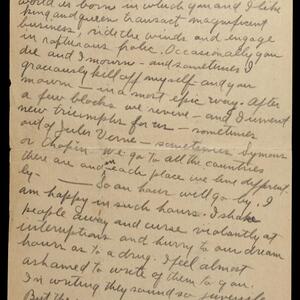 world is born in which you and I like
king and queen transact magnificent
business, ride the winds and engage
in rapturous frolic. Occasionally you
die and I mourn - and sometimes I
graciously kill off myself and you
mourn - in a most epic way. After
a few blocks we revive - and I invent
new triumphs for us - sometimes
out of Jules Verne - sometimes Symons
or Chopin. We go to all the countries
there are and in each place we live different-
ly - So an hour will go by. I
am happy in such hours. I shake
people away and curse violently at
interruptions and hurry to our dream
hours as to a drug. I feel almost
ashamed to write of them to you.
In writing they sound so
But the